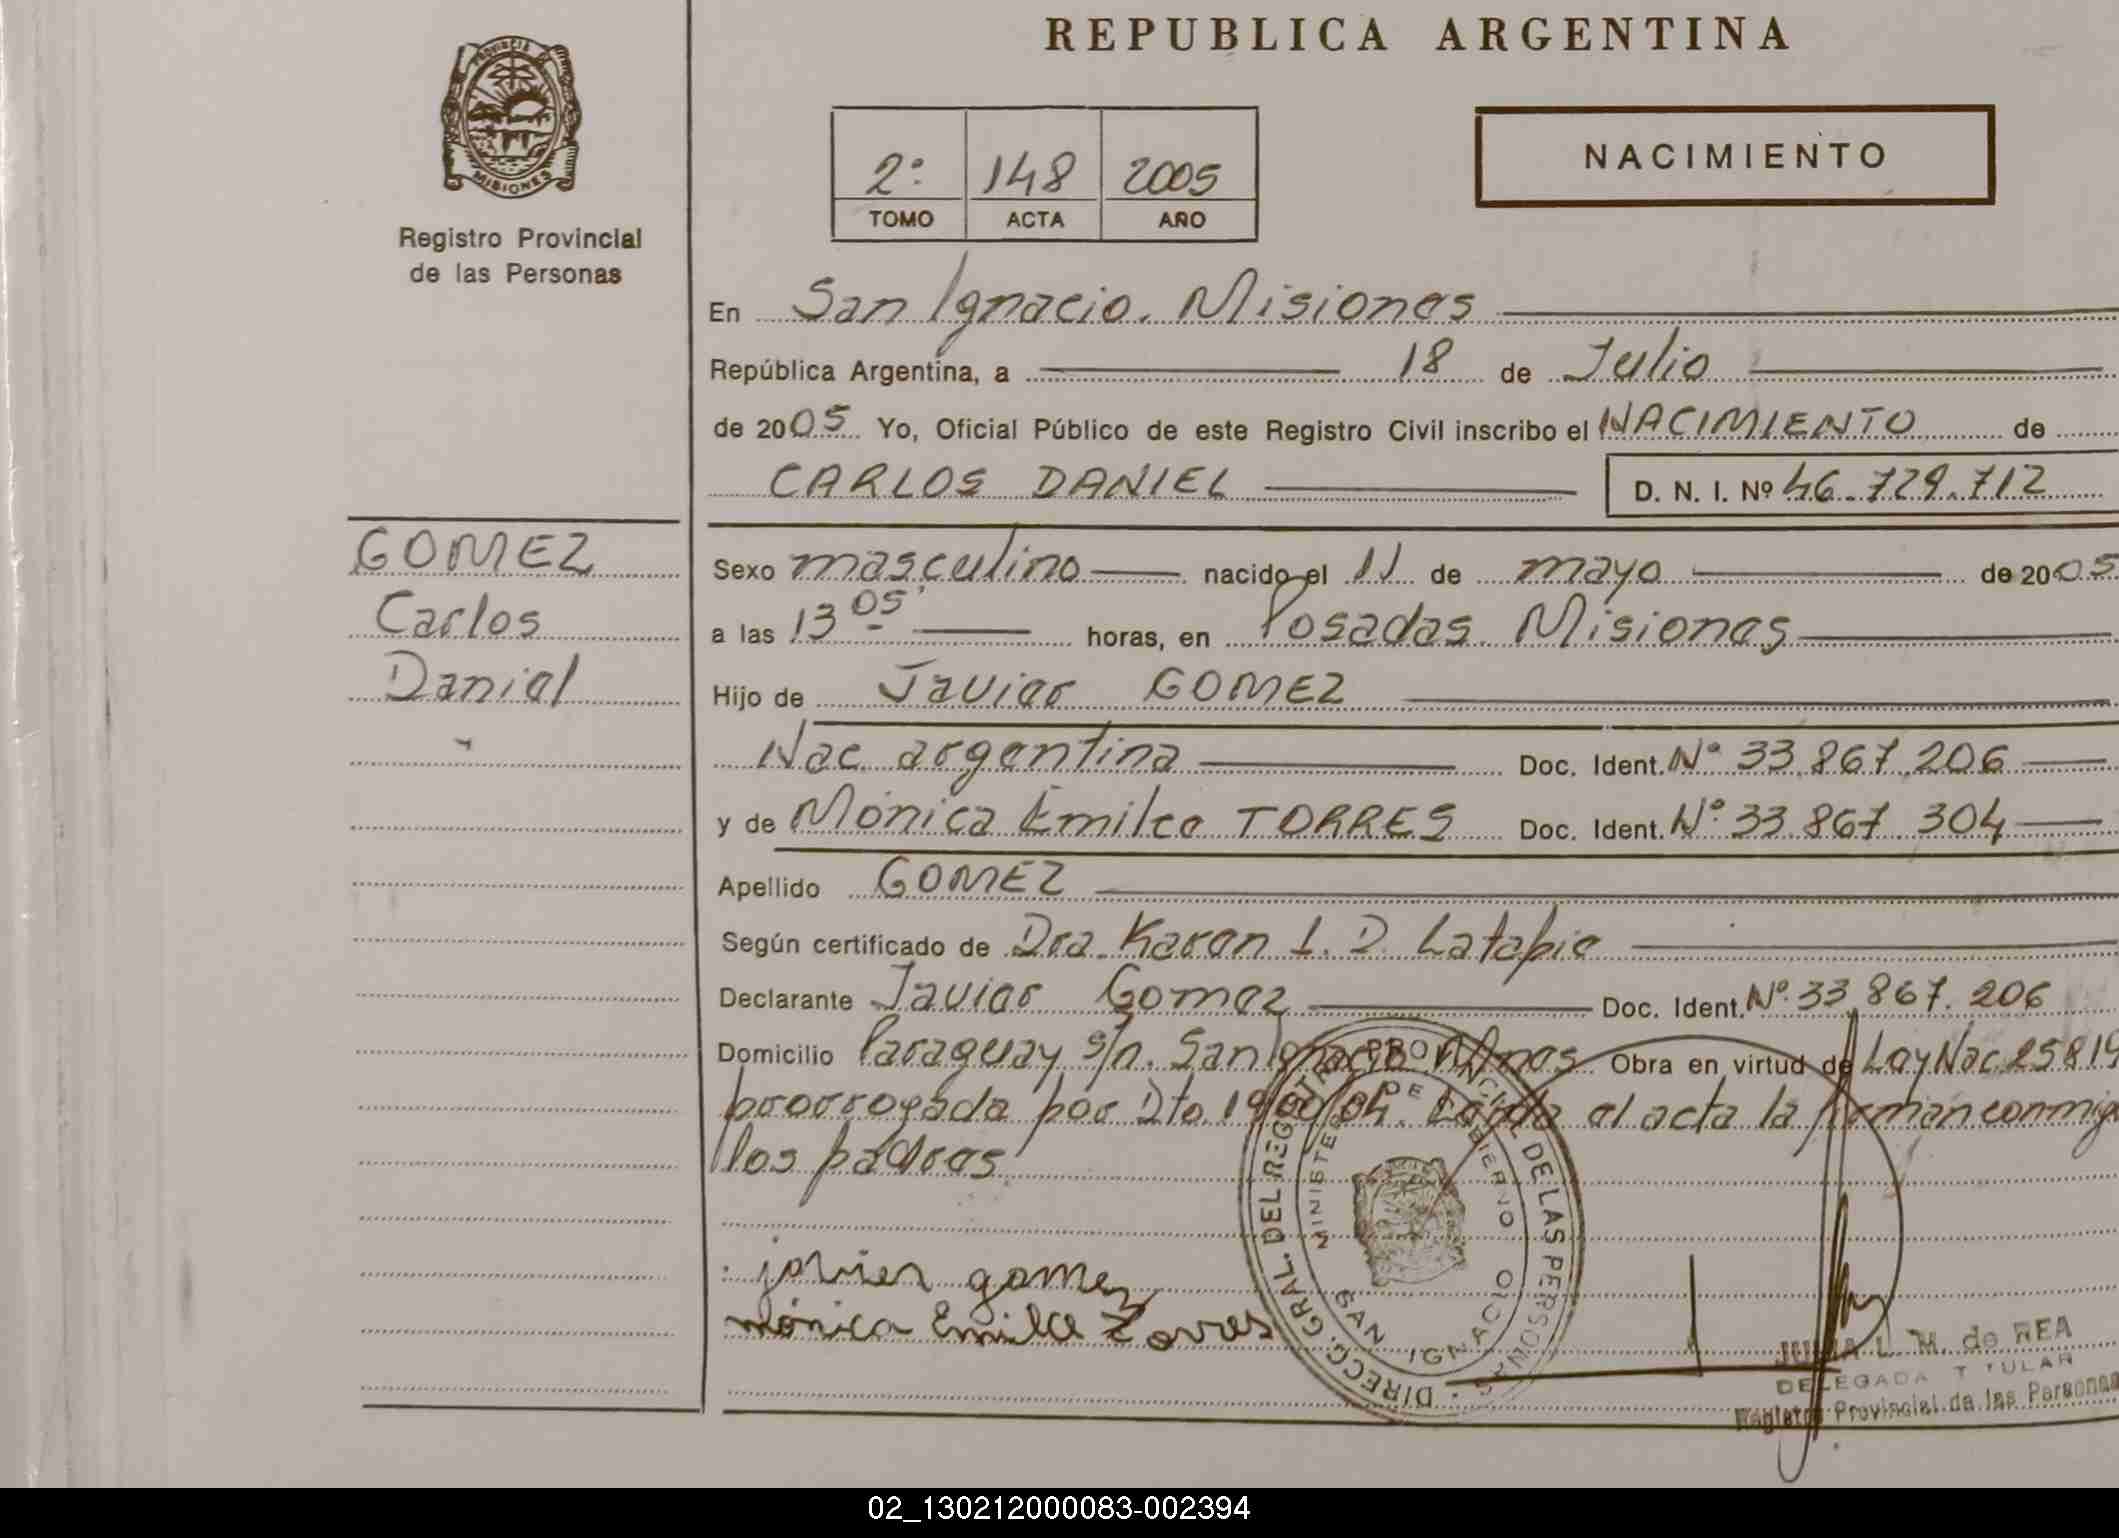 REPUBLICA ARGENTINA
PROVINCIA DE MISIONES
Registro Provincial
de las Personas
2º 148 2005
TOMO ACTA AÑO
NACIMIENTO
En San Ignacio. Misiones
República Argentina, a 18 de Julio
de 2005 Yo, Oficial Público de este Registro Civil inscribo el NACIMIENTO de
CARLOS DANIEL D. N. I. Nº 46.729.712
GOMEZ
Carlos
Daniel
Sexo masculino nacido el 11 de mayo de 2005
a las 13 05' horas, en Posadas. Misiones
Hijo de Javier GOMEZ
Nac. argentina Doc. Ident. Nº 33.867.206
y de Mónica Emilce TORRES Doc. Ident. Nº 33.867.304
Apellido GOMEZ
Según certificado de Dra. Karen I. D. Latapie
Declarante Javier Gomez Doc. Ident. Nº 33.867.206
Domicilio Paraguay s/n. San Ignacio Mnes Obra en virtud de Ley Nac. 25819
prorrogada por Dto. Leída el acta la firman conmigo
los padres
javier gomez
mónica Emilce Torres
DIRECC. GRAL. DEL REGISTRO PROVINCIAL DE LAS PERSONAS
MINISTERIO DE GOBIERNO
SAN IGNACIO
L. M. de REA
DELEGADA TITULAR
Registro Provincial de las Personas
02_130212000083-002394